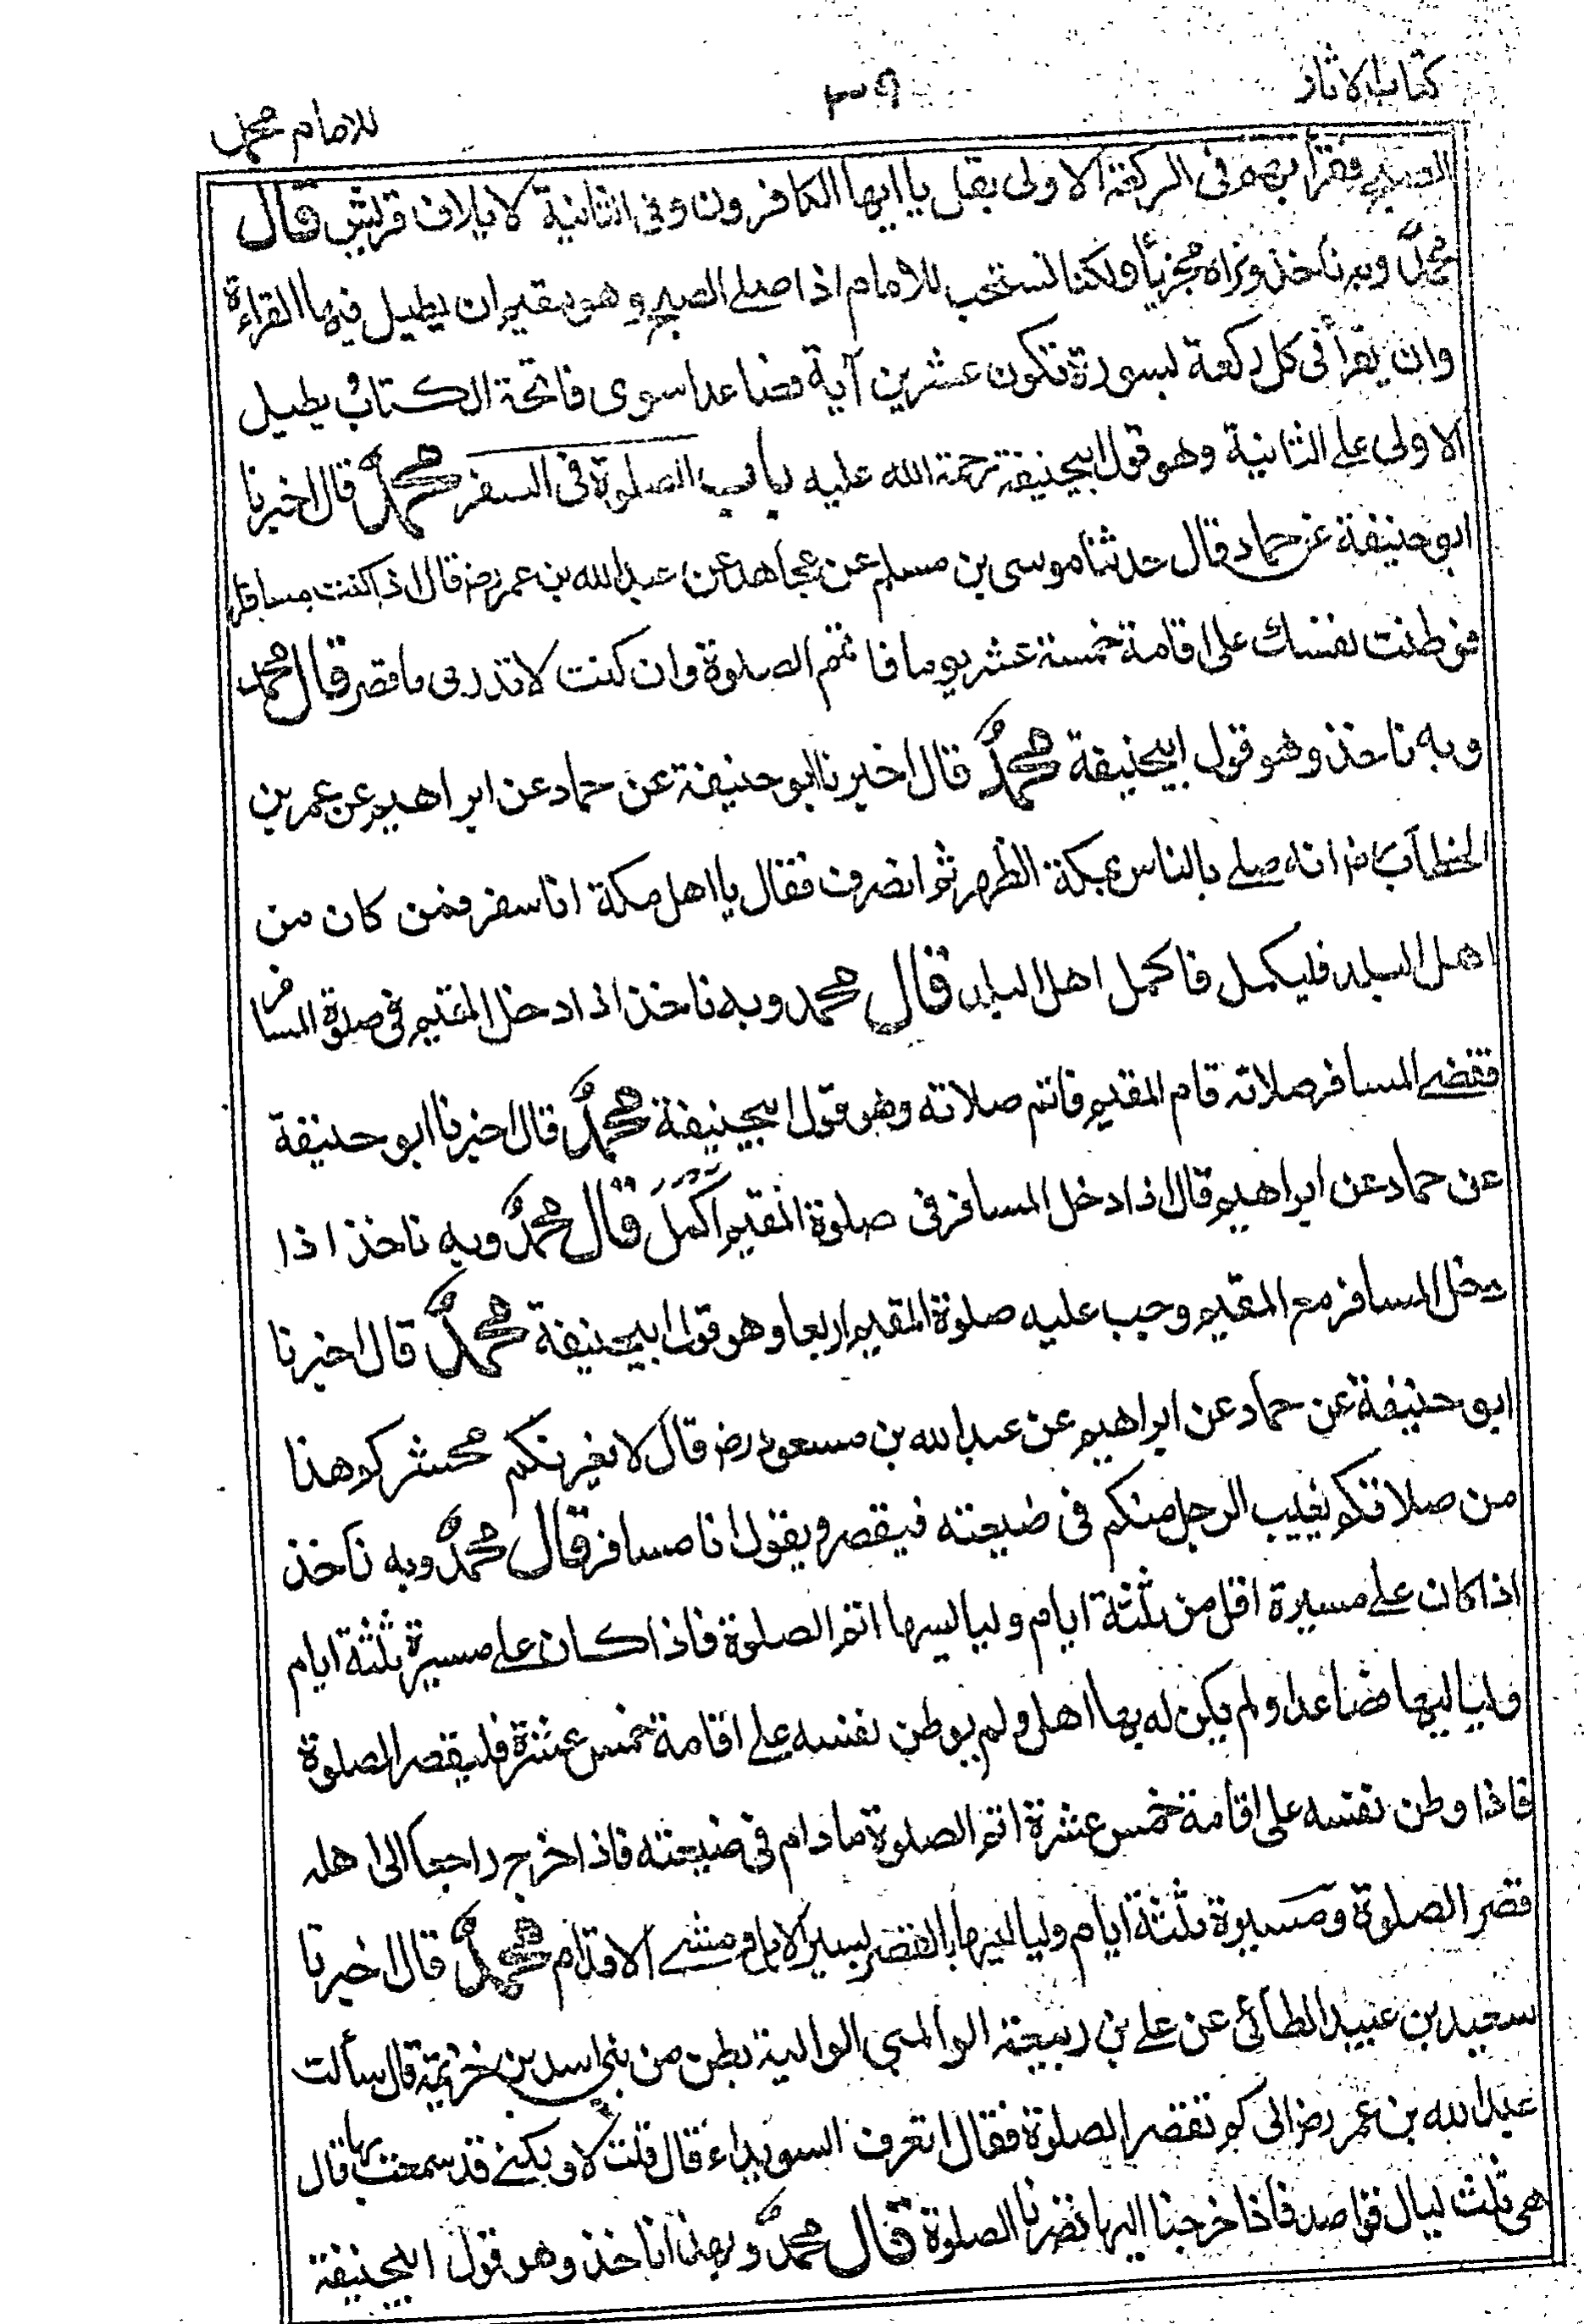 كتاب الاثار ٣٩ للامام محمد
الصبح فقرأ بهم فى الركعة الاولى بقل يا ايها الكافرون وفى الثانية لايلاف قريش قال
محمدؒ وبه ناخذ ونراه مجزيأ ولكنا نستحب للامام اذا صلے الصبح وهو مقيم ان يطيل فيها القراءة
وان يقرأ فى كل ركعة بسورة تكون عشرين آية فصاعدا سوى فاتحة الكتاب و يطيل
الاولى على الثانية وهو قول ابيحنيفة رحمة الله عليه باب الصلوة فى السفر محمدؒ قال اخبرنا
ابو حنيفة عن حماد قال حدثنا موسى بن مسلم عن مجاهد عن عبد الله بن عمر رضـ قال اذا كنت مسافرا
فوطنت نفسك على اقامة خمسة عشر يوما فاتمم الصلوة وان كنت لا تدرى ماقصر قال محمد
وبه ناخذ وهو قول ابيحنيفة محمدؒ قال اخبرنا ابو حنيفة عن حماد عن ابراهيم عن عمر بن
الخطاب رضـ انه صلے بالناس بمكة الظهر ثم انصرف فقال يا اهل مكة انا سفر فمن كان من
اهل البلد فليكمل فاكمل اهل البلد قال محمد وبه ناخذ اذا دخل المقيم فى صلوة المسافر
فقضے المسافر صلاته قام المقيم فاتم صلاته وهو قول ابيحنيفة محمدؒ قال اخبرنا ابو حنيفة
عن حماد عن ابراهيم قال اذا دخل المسافر فى صلوة المقيم اكمل قال محمدؒ وبه ناخذ اذا
دخل المسافر مع المقيم وجب عليه صلوة المقيم اربعا وهو قول ابيحنيفة محمدؒ قال اخبرنا
ابو حنيفة عن حماد عن ابراهيم عن عبد الله بن مسعود رضـ قال لا يغرنكم محشركم هذا
من صلاتكم يغيب الرجل منكم فى ضيعته فيقصر ويقول انا مسافر قال محمدؒ وبه ناخذ
اذا كان علے مسيرة اقل من ثلثة ايام ولياليها اتم الصلوة فاذا كان علے مسيرة ثلثة ايام
ولياليها فصاعدا ولم يكن له بها اهل ولم يوطن نفسه علے اقامة خمس عشرة فليقصر الصلوة
فاذا وطن نفسه على اقامة خمس عشرة اتم الصلوة ما دام فى ضيعته فاذا خرج راجعا الى اهله
قصر الصلوة ومسيرة ثلثة ايام ولياليها بالقصر بسير الابل ومشے الاقدام محمدؒ قال اخبرنا
سعيد بن عبيد الطائى عن على بن ربيعة الوالبى الوالبة بطن من بنى اسد بن خزيمة قال سألت
عبد الله بن عمر رضـ الى كم تقصر الصلوة فقال اتعرف السويداء قال قلت لا ولكنے قد سمعت بها قال
هى ثلث ليال قواصد فاذا خرجنا اليها قصرنا الصلوة قال محمدؒ وبهذا ناخذ وهو قول ابيحنيفة